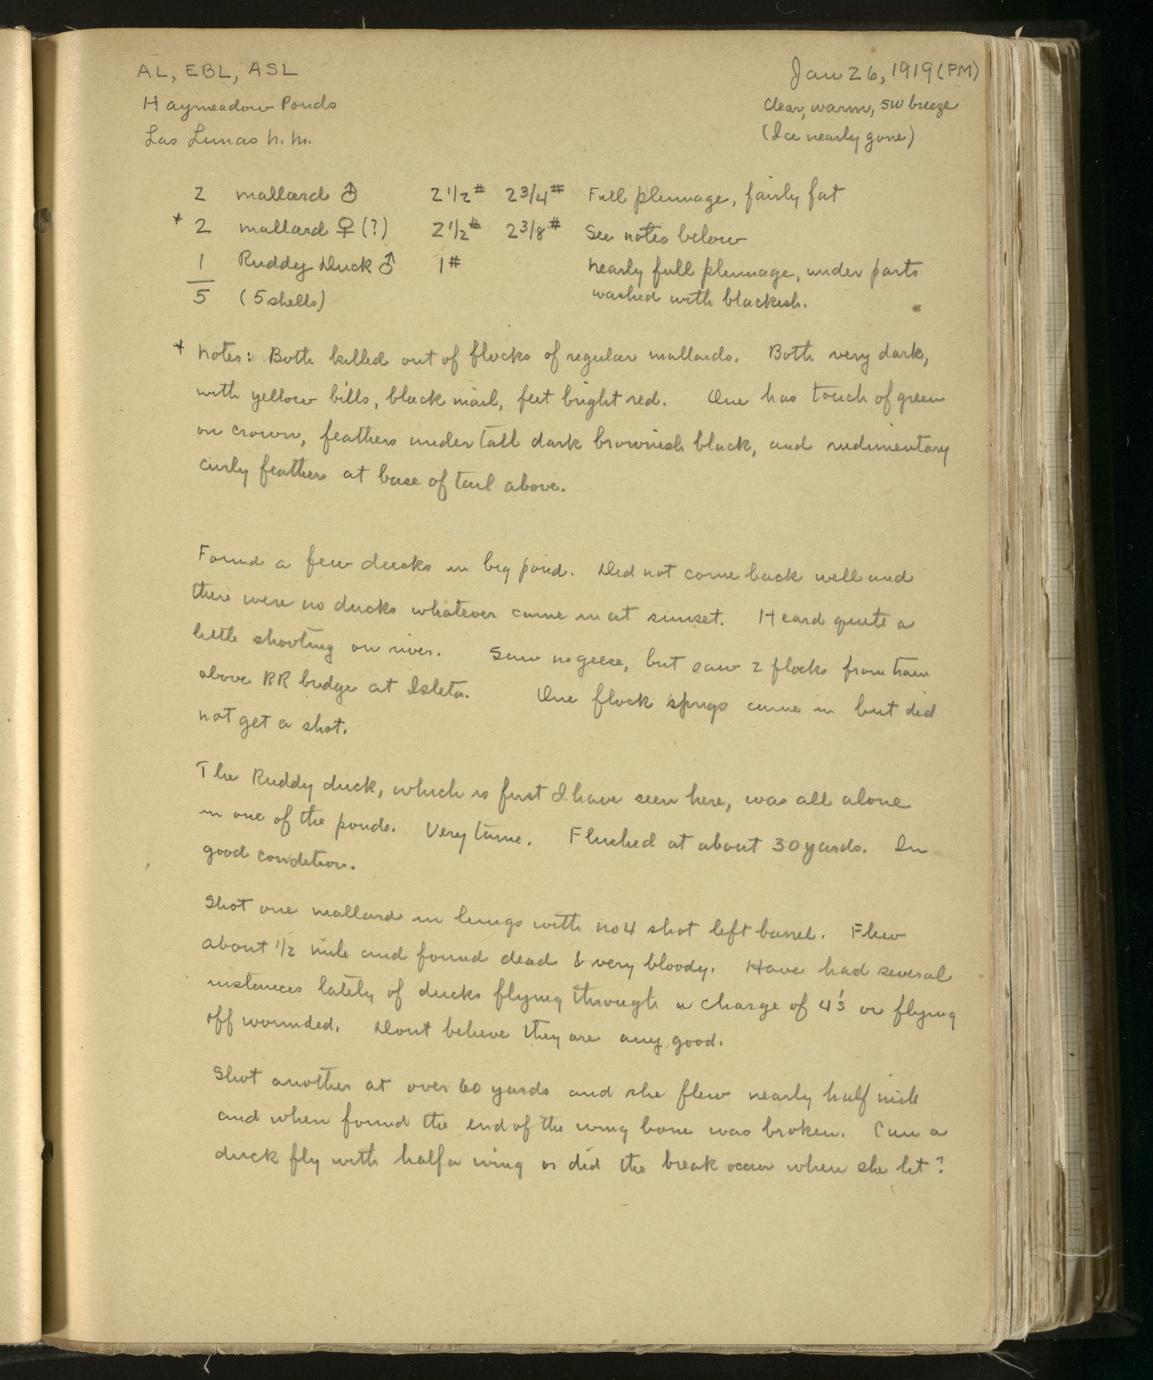 AL, EBL, ASL
Jan 26, 1919 (PM)
Haymeadow Ponds
clear, warm, SW breeze
Los Lunas N. M.
(Ice nearly gone)
2 mallard ♂ 2 1/2# 2 3/4# Full plumage, fairly fat
* 2 mallard ♀ (?) 2 1/2# 2 3/8# See notes below
1 Ruddy Duck ♂ 1# nearly full plumage, under parts
5 (5 shells) washed with blackish.
* Notes: Both killed out of flocks of regular mallards. Both very dark,
with yellow bills, black nail, feet bright red. One has touch of green
on crown, feathers under tail dark brownish black, and rudimentary
curly feathers at base of tail above.
Found a few ducks in big pond. Did not come back well and
there were no ducks whatever came in at sunset. Heard quite a
little shooting on river. Saw no geese, but saw 2 flocks from train
above RR bridge at Isleta. One flock sprigs came in but did
not get a shot.
The Ruddy duck, which is first I have seen here, was all alone
in one of the ponds. Very tame. Flushed at about 30 yards. In
good condition.
Shot one mallard in lungs with no 4 shot left barrel. Flew
about 1/2 mile and found dead & very bloody. Have had several
instances lately of ducks flying through a charge of 4's or flying
off wounded. Dont believe they are any good.
Shot another at over 60 yards and she flew nearly half mile
and when found the end of the wing bone was broken. Can a
duck fly with half a wing or did the break occur when she lit?